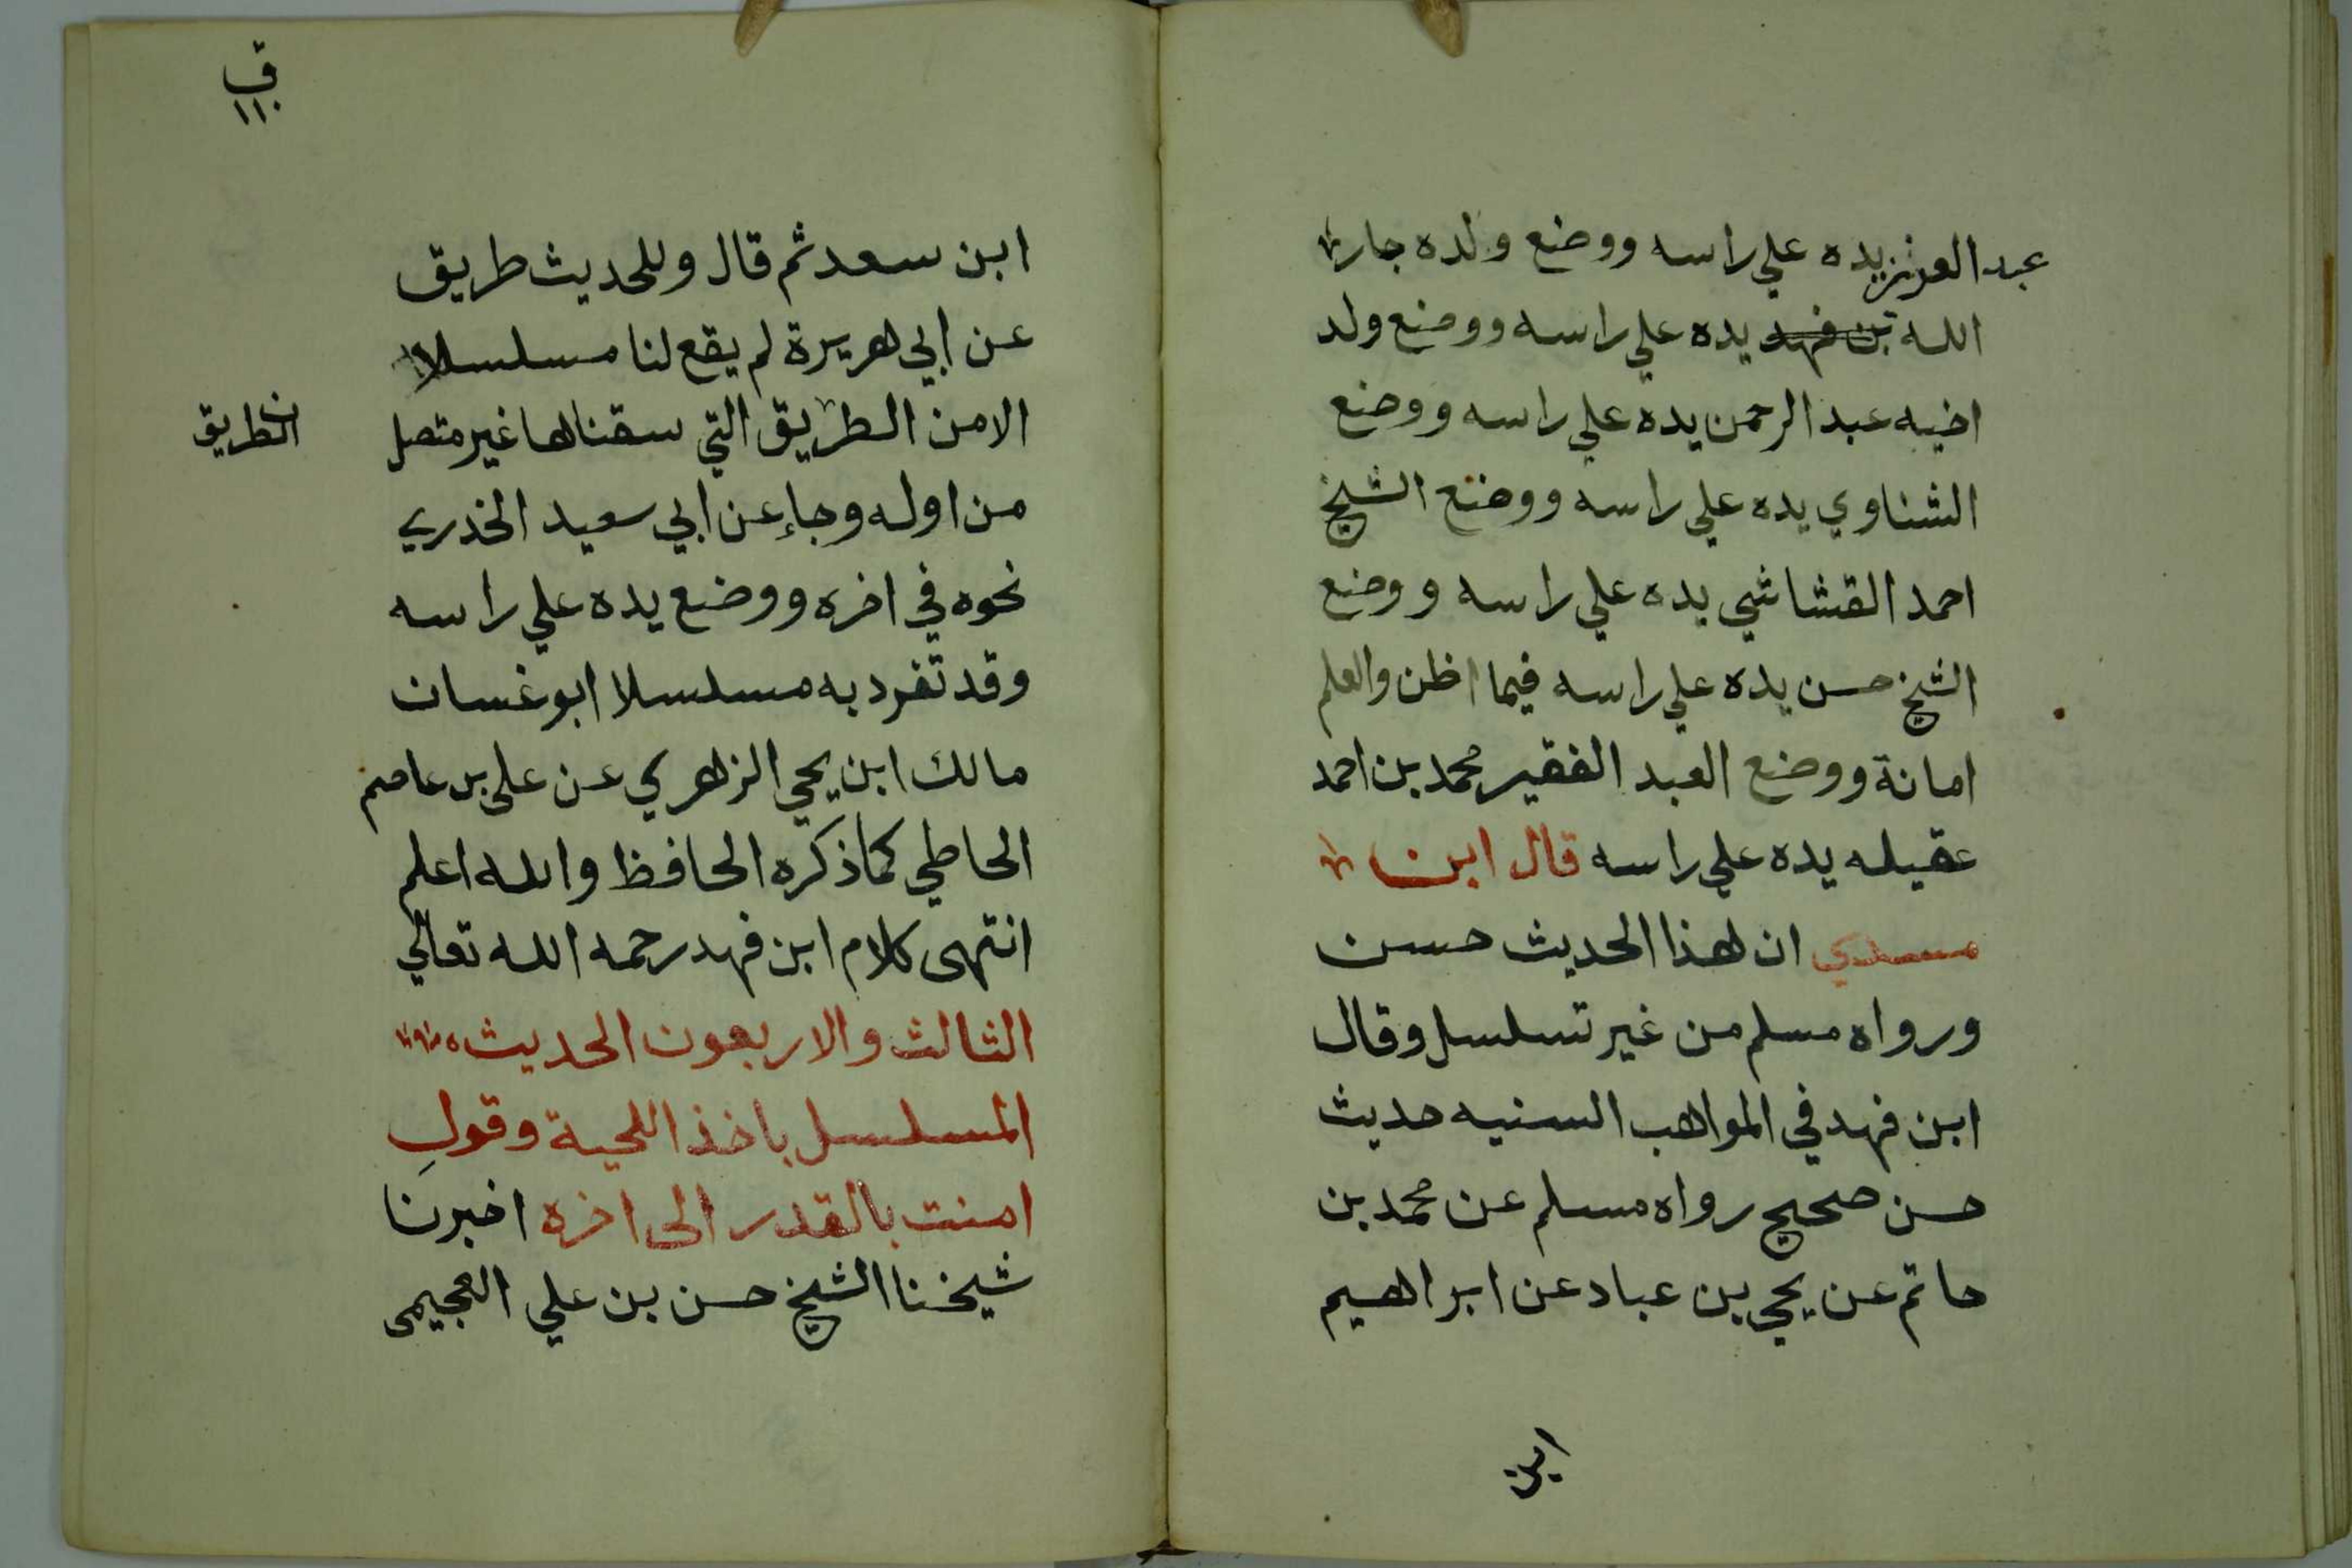 عبد العزيز يده علي راسه ووضع ولده جار
الله بن فهد يده علي راسه ووضع ولد
اخيه عبد الرحمن يده علي راسه ووضع
الشناوي يده علي راسه ووضع الشيخ
احمد القشاشي يده علي راسه ووضع
الشيخ حسن يده علي راسه فيما اظن والعلم
امانة ووضع العبد الفقير محمد بن احمد
عقيله يده علي راسه قال ابن
مسدي ان هذا الحديث حسن
ورواه مسلم من غير تسلسل وقال
ابن فهد في المواهب السنيه حديث
حسن صحيح رواه مسلم عن محمد بن
حاتم عن يحي بن عباد عن ابراهيم
ابن
ق
١١٠
ابن سعد ثم قال وللحديث طريق
عن ابي هريرة لم يقع لنا مسلسلا
الا من الطريق التي سقناها غير متصل
ن
الطريق
من اوله وجاء عن ابي سعيد الخدري
نحوه في اخره ووضع يده علي راسه
وقد تفرد به مسلسلا ابو غسان
مالك ابن يحي الزهري عن علي بن عاصم
الحاطي كما ذكره الحافظ والله اعلم
انتهى كلام ابن فهد رحمه الله تعالي
الثالث والاربعون الحديث
المسلسل باخذ اللحية وقول
امنت بالقدر الى اخره اخبرنا
شيخنا الشيخ حسن بن علي العجيمى